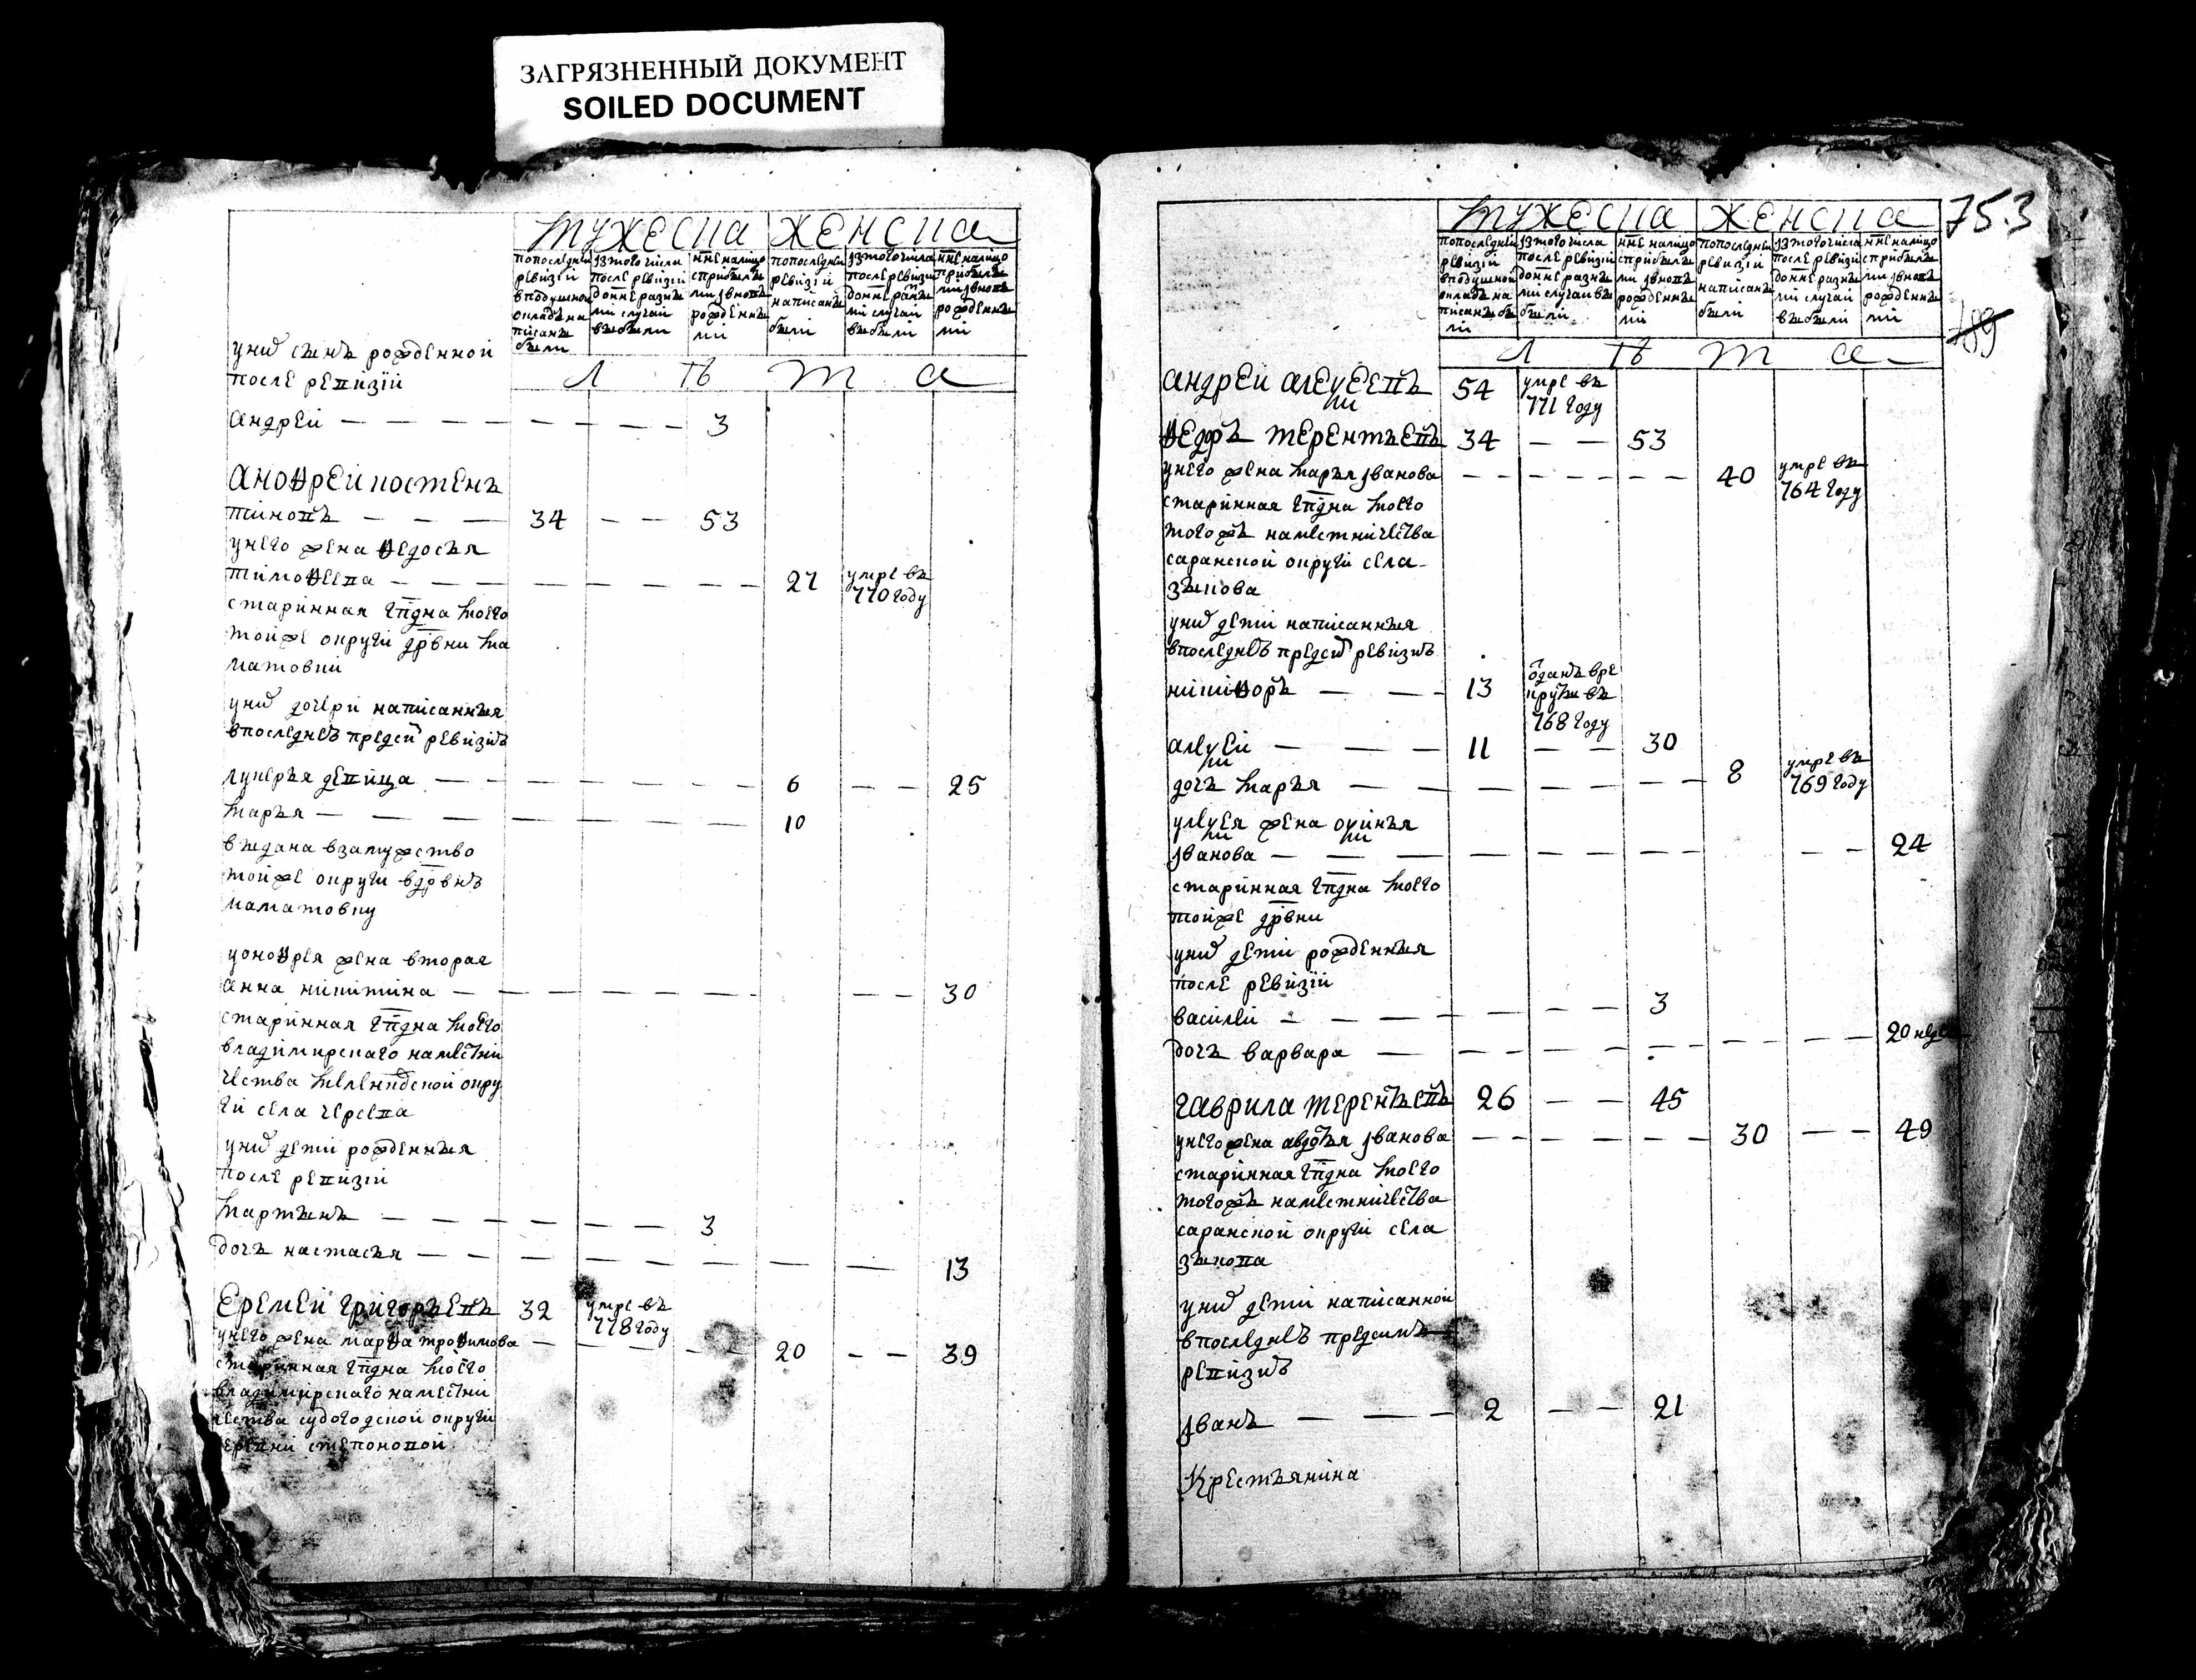 ЗАГРЯЗНЕННЫЙ ДОКУМЕНТ
SOILED DOCUMENT
мужеска женска
попоследнеи ревизiи вподушнои окладъ написаны были
iзтого числа после ревизiи донне разными случаи выбыли
нне налицо сприбылыми iвновь рожденными
попоследнеи ревизiи написаны были
iзтого числа после ревизiи донне разными случаи выбыли
нне налицо сприбылыми iвновь рожденными
лѣта
унихъ сынъ рожденной
после ревизiи
андрей — — — — — — 3
аноѳреи костен
тиновъ — — — 34 — — 53
унего жена ѳедосья
тимоѳеева — — — — — — 27 умре въ 770 году
старинная гпдна моего
тойже округи дрвни ма
матовки
унихъ дочери написанныя
впоследнеѣ предсiи ревизиѣ
лукерья девица — — — — — 6 — — 25
марья — — — — — — 10
выдана взамужство
тойже округи вдрвнѣ
маматовку
уноѳрея жена вторая
анна никитина — — — — — — — 30
старинная гпдна моего
владимирскаго наместни
чества меленкдской окру
ги села черсева
унихъ дети рожденныя
после ревизiи
мартынъ — — — — — 3
дочь настасья — — — — — — — 13
еремей григорьевъ 32 умре въ 778 году
унего жена марѳа троѳимова — — — — 20 — — 39
старинная гпдна моего
владимирскаго наместни
чества судогодской округи
деревни степоновой
753
189
мужеска женска
попоследнеи ревизiи вподушнои окладъ написаны были
iзтого числа после ревизiи донне разными случаи выбыли
нне налицо сприбылыми iвновь рожденными
попоследнеи ревизiи написаны были
iзтого числа после ревизiи донне разными случаи выбыли
нне налицо сприбылыми iвновь рожденными
лѣта
андрей алексеевъ 54 умре въ 771 году
ѳедоръ терентьевъ 34 — — 53
унего жена марья iванова — — — — — — 40 умре въ 764 году
старинная гпдна моего
тогожъ наместничества
саранской округи села
зыкова
унихъ дети написанныя
впоследнеѣ предсiи ревизиѣ
никиѳоръ — — — 13 ѿданъ врекруты въ 768 году
алексей — — — 11 — — 30
дочь марья — — — — — — 8 умре въ 769 году
улексея жена оксинья
iванова — — — — — — — — 24
старинная гпдна моего
тойже дрвни
унихъ дети рожденныя
после ревизiи
василей — — — — — 3
дочь варвара — — — — — — — — 20 недель
гаврила терентьевъ 26 — — 45
унего жена авдотья iванова — — — — — — 30 — — 49
старинная гпдна моего
тогожъ наместничества
саранской округи села
зыкова
унихъ дети написанной
впоследнеѣ предсимъ
ревизиѣ
iванъ — — — 2 — — 21
Крестьянина